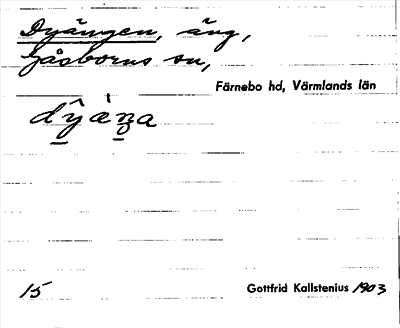 Dyängen, äng,
Gåsborns sn,
Färnebo hd, Värmlands län
15
Gottfrid Kallstenius 1903